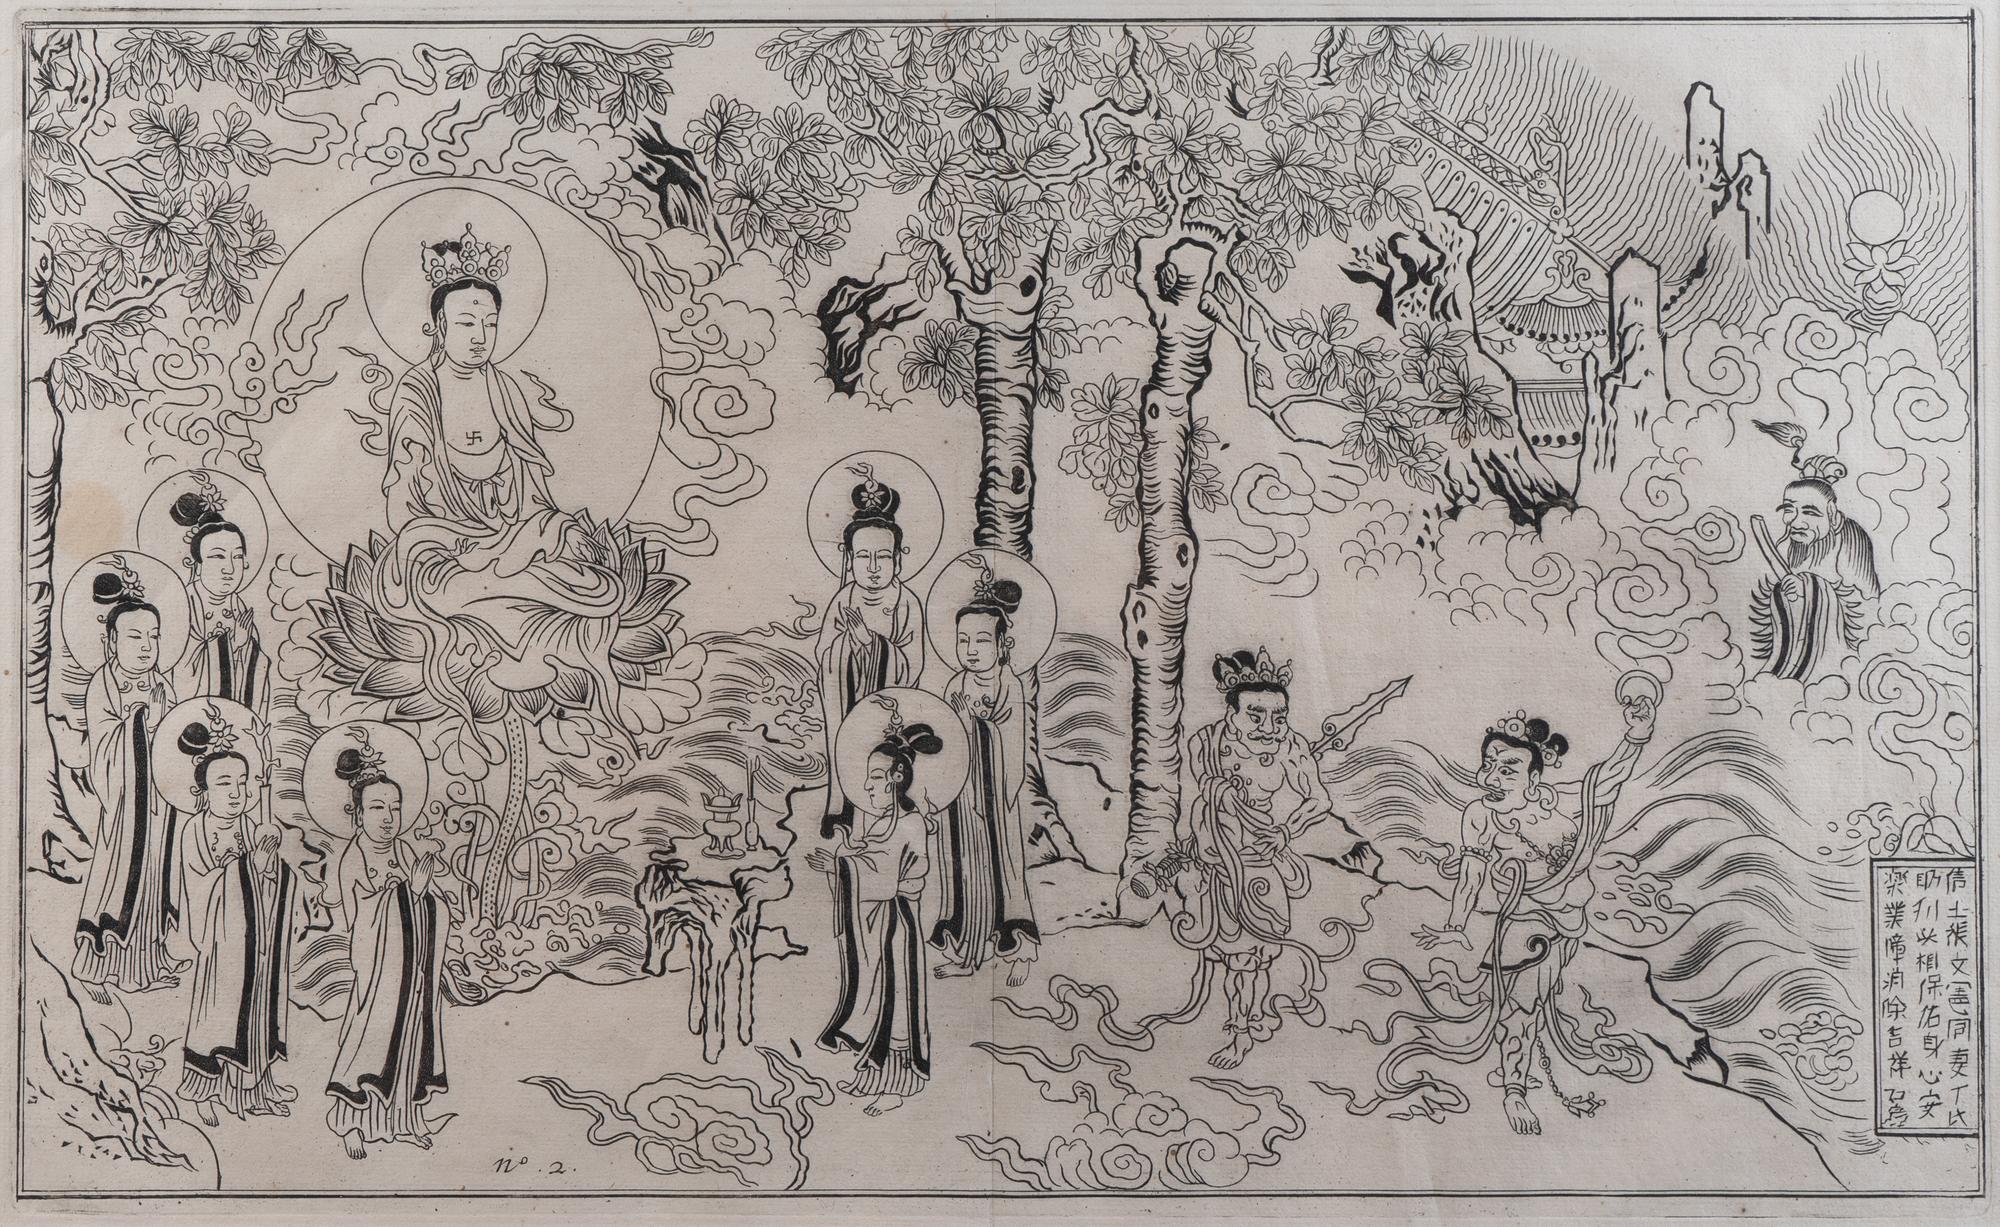 信士張文憲同妻丁氏
助刊此相保佑身心安
樂業障消除吉祥如意
nº. 2.